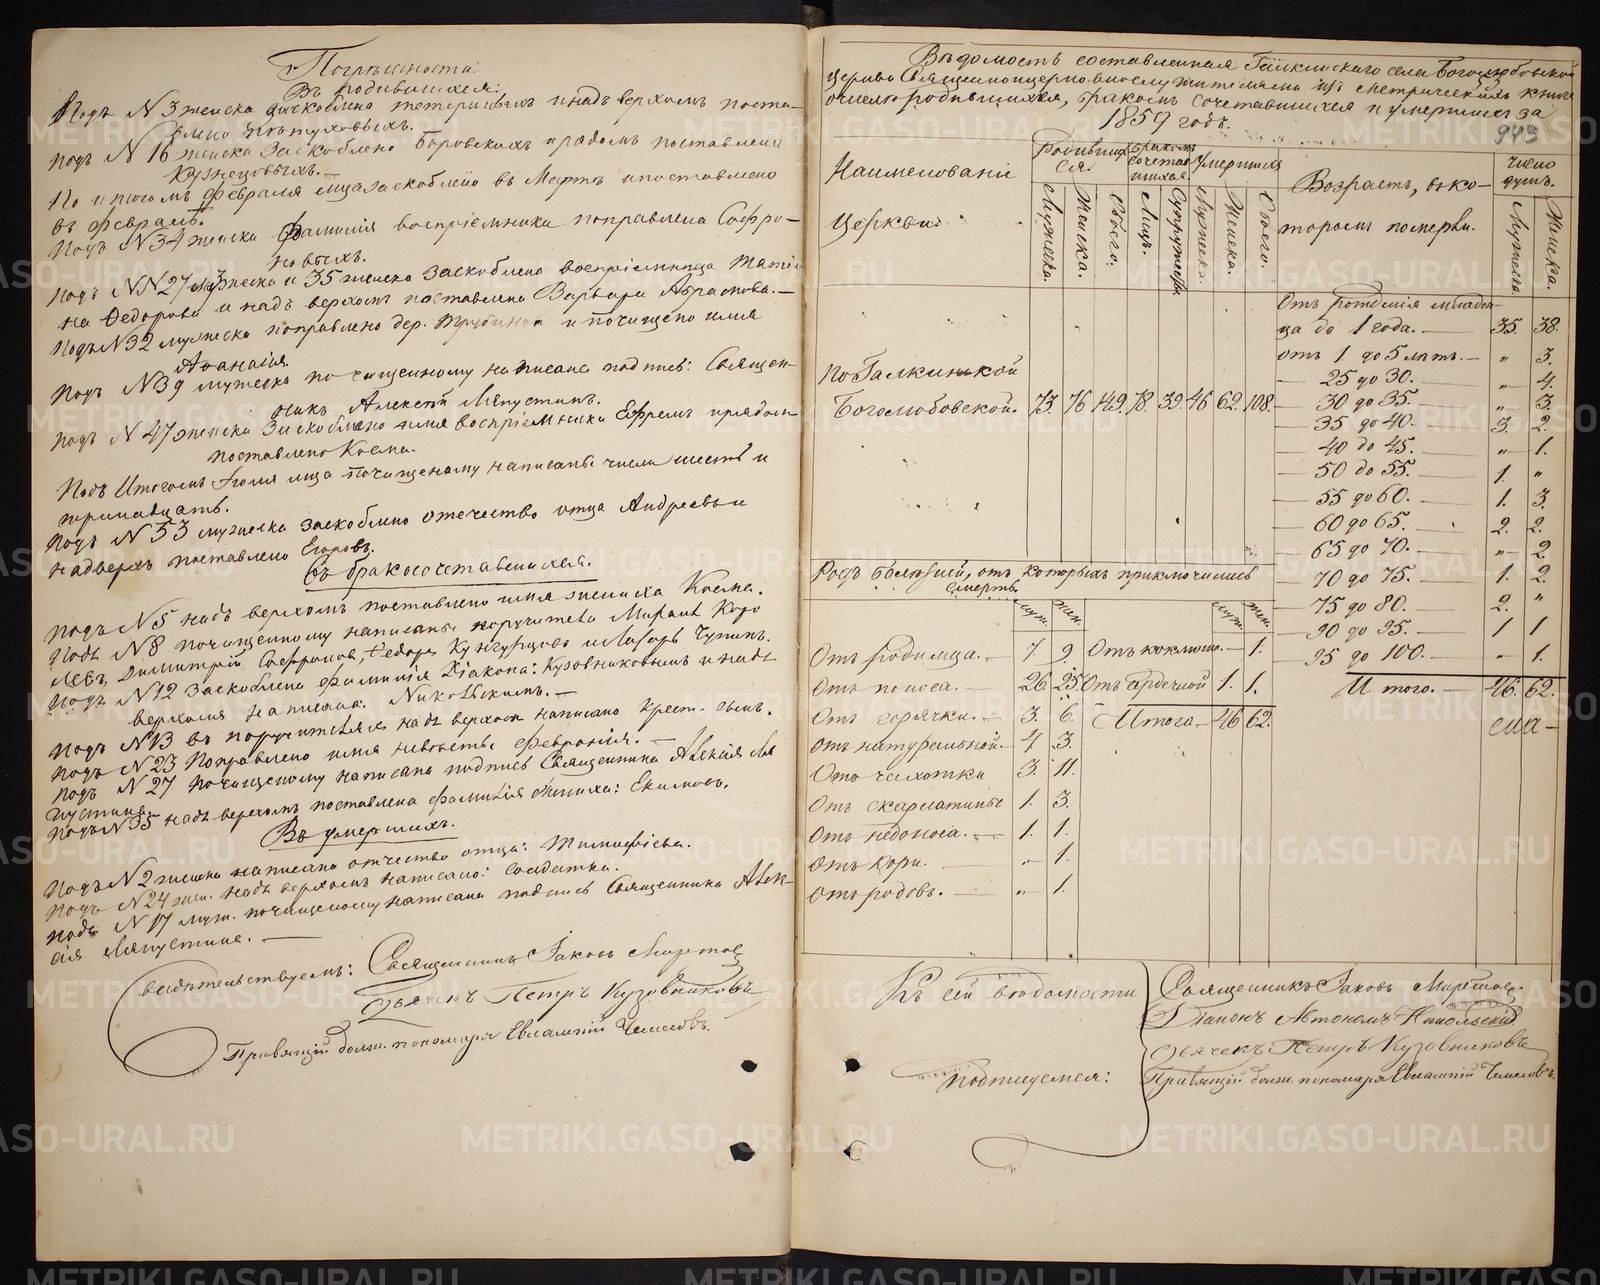 Погрешности:
Въ родившихся:
Подъ N 3 женска заскоблено и надъ верхомъ поста-
влено Пѣтуховыхъ.
подъ N 16 женска заскоблено Боровскихъ и рядомъ поставлено
Кузнецовыхъ.—
По итогомъ Февраля лица заскоблено въ Мартѣ и поставлено
въ Февралѣ.
Подъ N 34 женска фамилія воспріемника поправлена Софро-
новыхъ.
подъ NN 27 мужеска и 35 женска заскоблено воспріемница Татія-
на Федорова и надъ верхомъ поставлена Варвара Абрамова.—
подъ N 32 мужеска поправлено дер. и почищено имя
Аѳанасія.
Подъ N 39 мужеска по чищенному написана подпись: Священ-
никъ Алексѣй Ляпустинъ.
подъ N 47 женска заскоблено имя воспріемника Ефремъ и рядомъ
поставлено Косма.
Подъ Итогомъ Іюля лица по чищеному написаны числа шесть и
тринадцать.
подъ N 53 мужеска заскоблено отечество отца Андреевъ и
надверхъ поставлено Егоровъ.
Въ бракосочетавшихся.
подъ N 5 надъ верхомъ поставлено имя жениха Косма.
Подъ N 8 почищенному написаны поручители Михаилъ Коро
левъ, Димитрій Софроновъ, Федоръ Кунгурцовъ и Лазарь Чупинъ.
подъ N 12 заскоблено фамилія Діакона: Кузовниковымъ и надъ
верхомъ написана: Никольскимъ.—
подъ N 13 въ поручителяхъ надъ верхомъ написано крест. сынъ.
подъ N 23 Поправлено имя невѣсты Февронія.—
подъ N 27 почищеному написана подпись Священника Алексія Ля
пустина.
подъ N 35 надъ верхомъ поставлена фамилія жениха: Екимовъ.
Въ умершихъ.
Подъ N 2 женска написано отчество отца: Тимофіева.
подъ N 24 жен. надъ верхомъ написано: солдатка.
подъ N 17 муж. почищеному написана подпись Священника Алек-
сія Ляпустина.—
Свидѣтельствуемъ: Священникъ Іаковъ
Дьячекъ Петръ Кузовниковъ
Правящій долж. пономаря Евлампій
Вѣдомость составленная Галкинскаго села Боголюбовской
Церкви Священноцерковнослужителями изъ метрическихъ книгъ
о числѣ родившихся, бракомъ сочетавшихся и умершихъ за
1859 годъ.
943
Наименованіе
Церкви.
Родивших
ся.
Бракомъ
сочетав
шихся.
Умершихъ
Возрастъ, въ ко-
торомъ померли.
Число
душъ.
Мужеска.
Женска.
Обоего.
Лицъ.
Супружествъ.
Мужеска.
Женска.
Обоего.
Мужеска.
Женска.
По Галкинской
Боголюбовской. 73. 76 149. 78. 39. 46 62. 108.
Отъ рожденія младен-
ца до 1 года.— 35. 38.
отъ 1 до 5 лѣтъ.— „ 3.
— 25 до 30.— „ 4.
— 30 до 35.— „ 3.
— 35 до 40.— 3. 2.
— 40 до 45.— „ 1.
— 50 до 55.— 1. „
— 55 до 60.— 1. 3.
— 60 до 65.— 2. 2.
— 65 до 70.— „ 2.
— 70 до 75.— 1. 2.
— 75 до 80.— 2. „
— 90 до 95.— 1 1
— 95 до 100.— „ 1.
Итого.— 46. 62.
Родъ болѣзней, отъ которыхъ приключились
смерть.
муж. жен. муж. жен.
Отъ родимца.— 7 9. Отъ коклюша.— „ 1.
Отъ поноса.— 26. 25. Отъ сердечной 1. 1.
Отъ горячки.— 3. 6. Итого— 46 62.
Отъ натуральной.— 4 3.
Отъ чахотки 3. 11.
Отъ скарлатины 1. 3.
Отъ недоноса.— 1. 1.
Отъ кори.— „ 1.
Отъ родовъ.— „ 1.
Къ сей вѣдомости
подписуемся:
Священникъ Іаковъ
Діаконъ Автономъ Никольскій
Дьячекъ Петръ Кузовниковъ
Правящій долж. пономаря Евлампій
METRIKI.GASO-URAL.RU